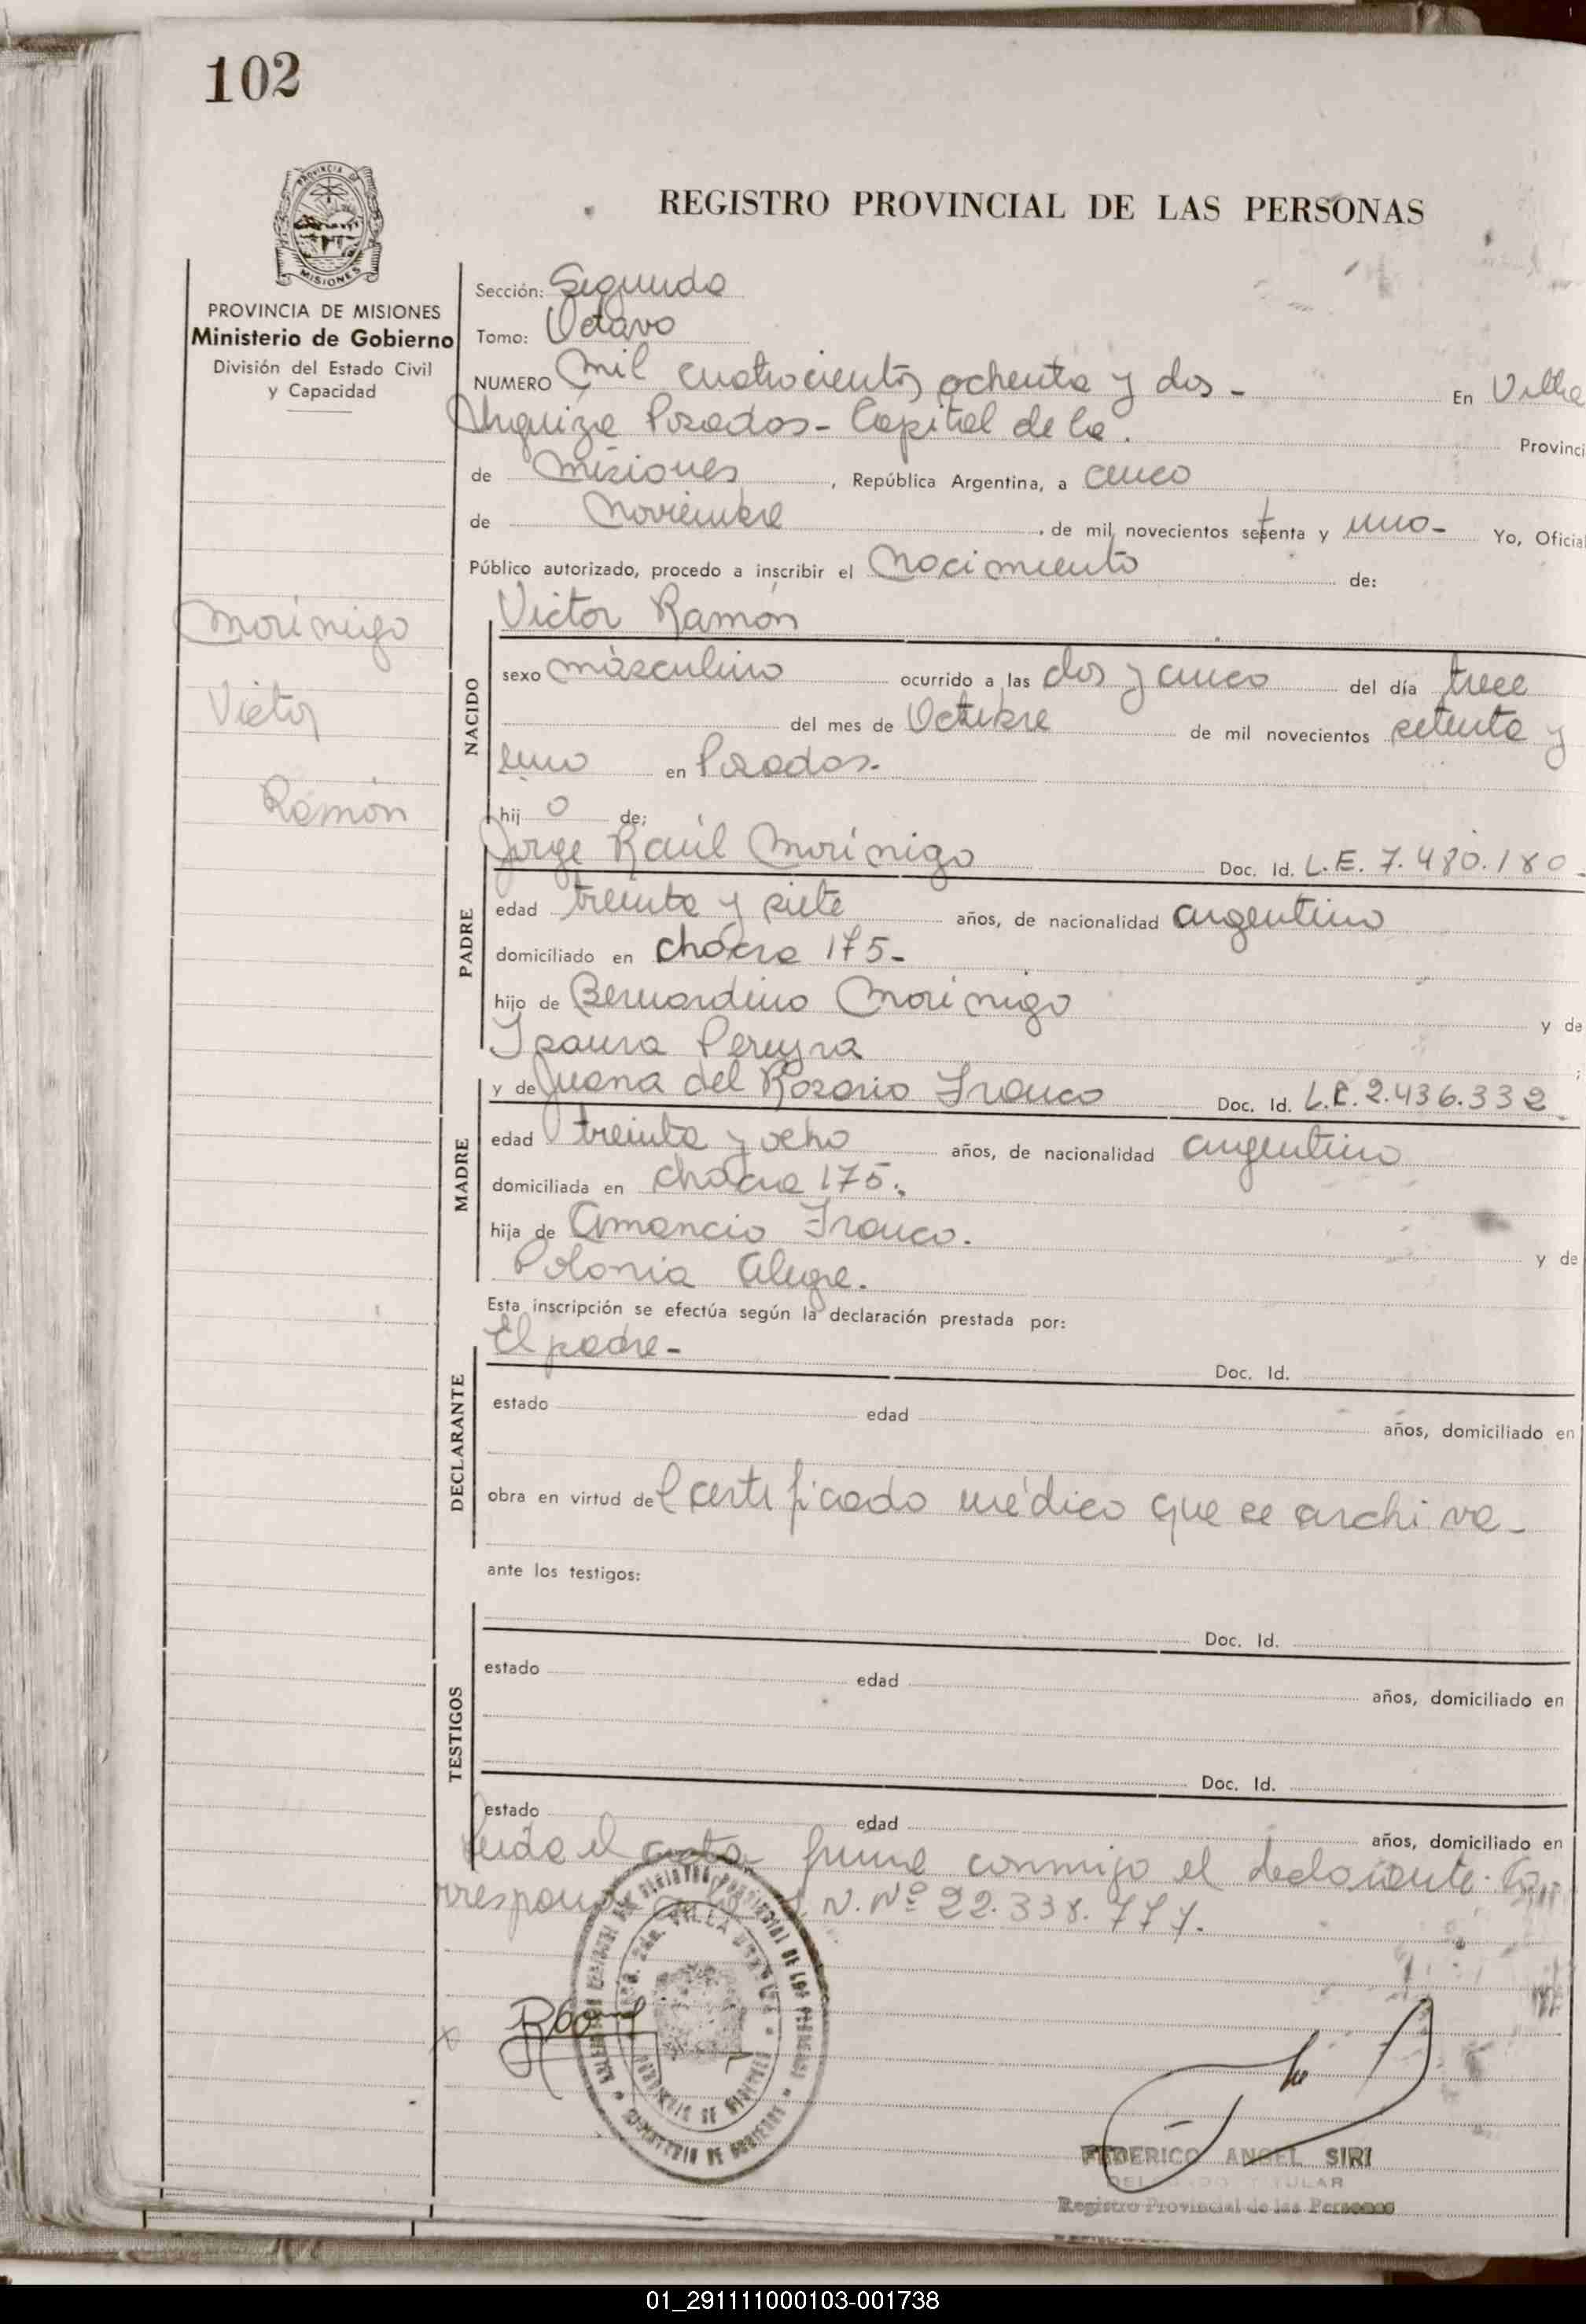 102
PROVINCIA DE
MISIONES
REGISTRO PROVINCIAL DE LAS PERSONAS
PROVINCIA DE MISIONES
Ministerio de Gobierno
División del Estado Civil
y Capacidad
Sección: Segunda
Tomo: Octavo
NUMERO Mil cuatrocientos ochenta y dos - En Villa
Urquiza Posadas - Capital de la. Provinci
de Misiones, República Argentina, a cinco
de Noviembre, de mil novecientos setenta y uno - Yo, Oficial
Público autorizado, procedo a inscribir el Nacimiento de:
Morínigo
Victor
Ramón
NACIDO
Victor Ramón
sexo másculino ocurrido a las dos y cinco del día trece
del mes de Octubre de mil novecientos setenta y
uno en Posadas.
hijo de:
PADRE
Jorge Raúl Morínigo Doc. Id. L.E. 7.480.180-
edad treinta y siete años, de nacionalidad argentino
domiciliado en chacra 175-
hijo de Bernardino Morínigo y de
Isaura Pereyra
MADRE
y de Juana del Rosario Franco Doc. Id. L.C. 2.436.332
edad treinta y ocho años, de nacionalidad argentino
domiciliada en chacra 175.
hija de Amancio Franco. y de
Polonia Alegre.
Esta inscripción se efectúa según la declaración prestada por:
DECLARANTE
El padre - Doc. Id.
estado edad años, domiciliado en
obra en virtud del certificado médico que se archiva-
ante los testigos:
TESTIGOS
Doc. Id.
estado edad años, domiciliado en
Doc. Id.
estado edad años, domiciliado en
Leida el acta firma conmigo el declarante. Co
rresponde N. Nº 22.338.777.
VILLA URQUIZA
PROVINCIA DE MISIONES
MINISTERIO DE GOBIERNO
FEDERICO ANGEL SIRI
DELEGADO TITULAR
Registro Provincial de las Personas
01_291111000103-001738